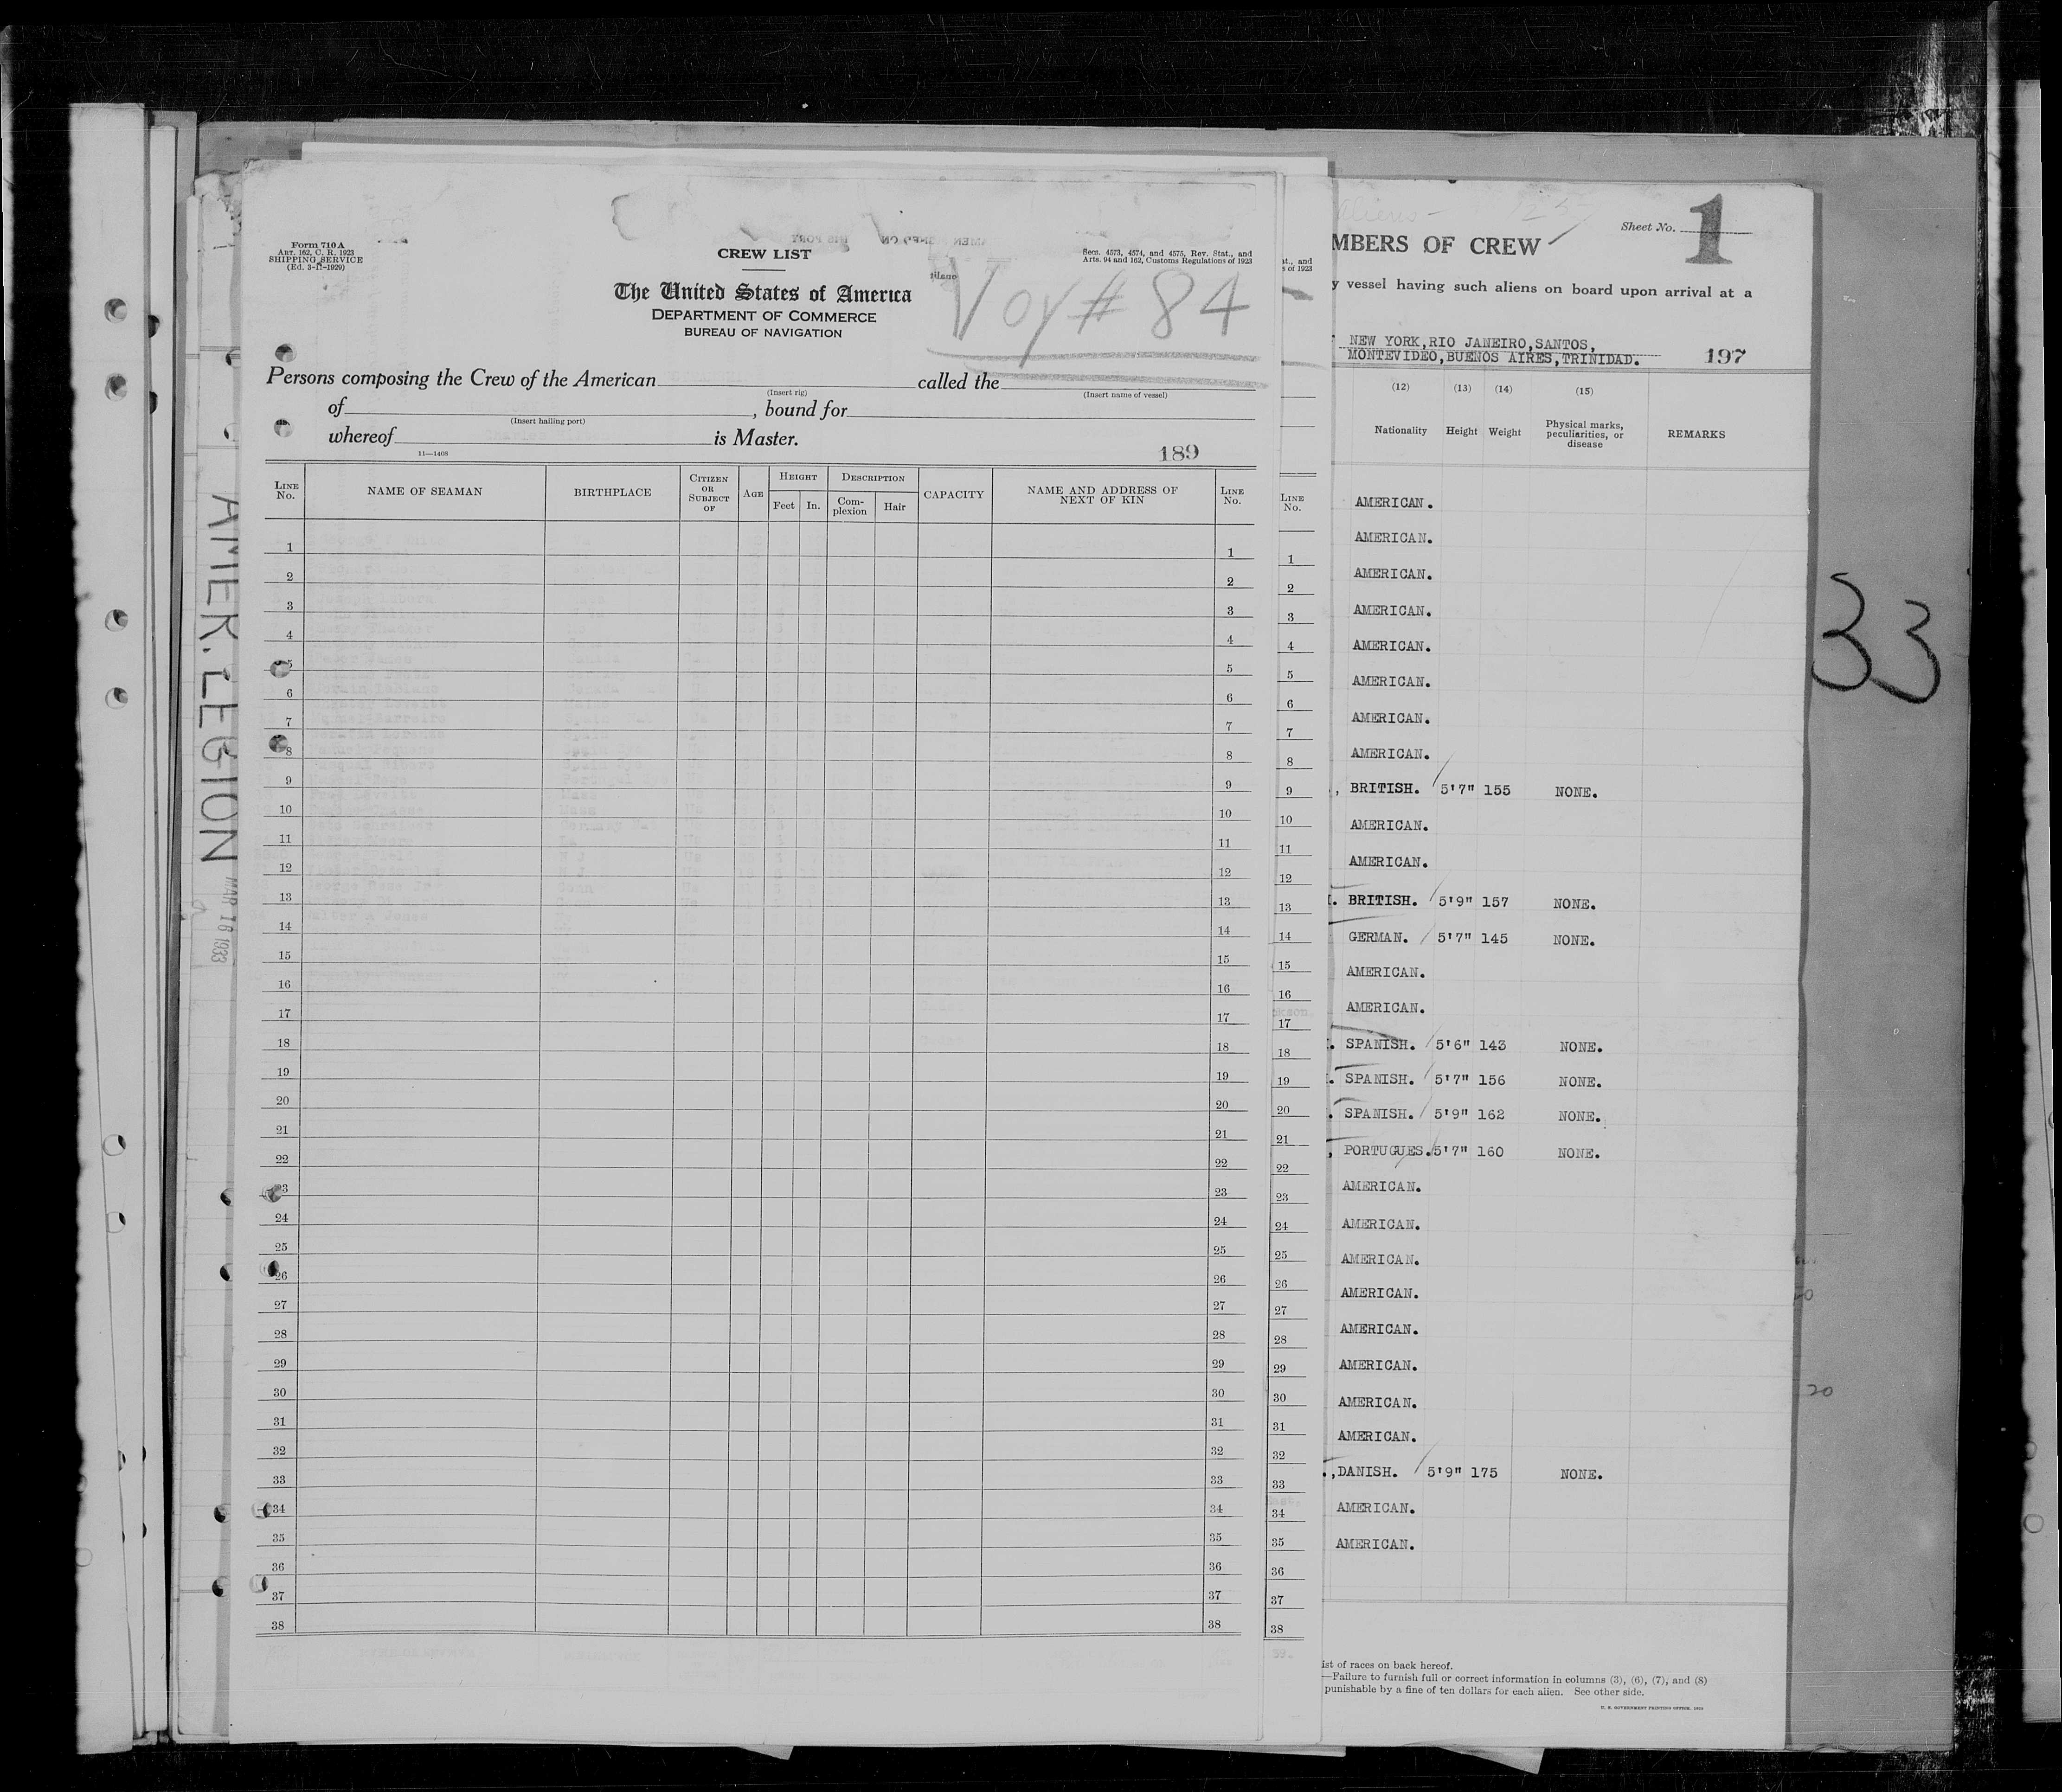 Form 710 A
ART. 162, C. R. 1923
SHIPPING SERVICE
(Ed. 3-11-1929)
CREW LIST
Secs. 4573, 4574, and 4575, Rev. Stat., and
Arts. 94 and 162, Customs Regulations of 1923
The United States of America
DEPARTMENT OF COMMERCE
BUREAU OF NAVIGATION
Voy # 84
Persons composing the Crew of the American called the
(Insert rig) (Insert name of vessel)
of , bound for
(Insert hailing port)
whereof is Master.
11—1408
189
LINE No. NAME OF SEAMAN BIRTHPLACE CITIZEN OR SUBJECT OF AGE HEIGHT Feet In. DESCRIPTION Complexion Hair CAPACITY NAME AND ADDRESS OF NEXT OF KIN LINE No.
1 1
2 2
3 3
4 4
5 5
6 6
7 7
8 8
9 9
10 10
11 11
12 12
13 13
14 14
15 15
16 16
17 17
18 18
19 19
20 20
21 21
22 22
23 23
24 24
25 25
26 26
27 27
28 28
29 29
30 30
31 31
32 32
33 33
34 34
35 35
36 36
37 37
38 38
AMER. LEGION
MAR 16 1933
t., and
s of 1923
LINE No.
1
2
3
4
5
6
7
8
9
10
11
12
13
14
15
16
17
18
19
20
21
22
23
24
25
26
27
28
29
30
31
32
33
34
35
36
37
38
Sheet No. 1
MBERS OF CREW
y vessel having such aliens on board upon arrival at a
NEW YORK,RIO JANEIRO,SANTOS,
MONTEVIDEO,BUENOS AIRES,TRINIDAD.
197
(12) (13) (14) (15)
Nationality Height Weight Physical marks, peculiarities, or disease REMARKS
AMERICAN.
AMERICAN.
AMERICAN.
AMERICAN.
AMERICAN.
AMERICAN.
AMERICAN.
AMERICAN.
, BRITISH. 5'7" 155 NONE.
AMERICAN.
AMERICAN.
. BRITISH. 5'9" 157 NONE.
GERMAN. 5'7" 145 NONE.
AMERICAN.
AMERICAN.
. SPANISH. 5'6" 143 NONE.
. SPANISH. 5'7" 156 NONE.
. SPANISH. 5'9" 162 NONE.
, PORTUGUES. 5'7" 160 NONE.
AMERICAN.
AMERICAN.
AMERICAN.
AMERICAN.
AMERICAN.
AMERICAN.
AMERICAN.
AMERICAN.
.,DANISH. 5'9" 175 NONE.
AMERICAN.
AMERICAN.
ist of races on back hereof.
—Failure to furnish full or correct information in columns (3), (6), (7), and (8)
punishable by a fine of ten dollars for each alien. See other side.
U. S. GOVERNMENT PRINTING OFFICE
33
20